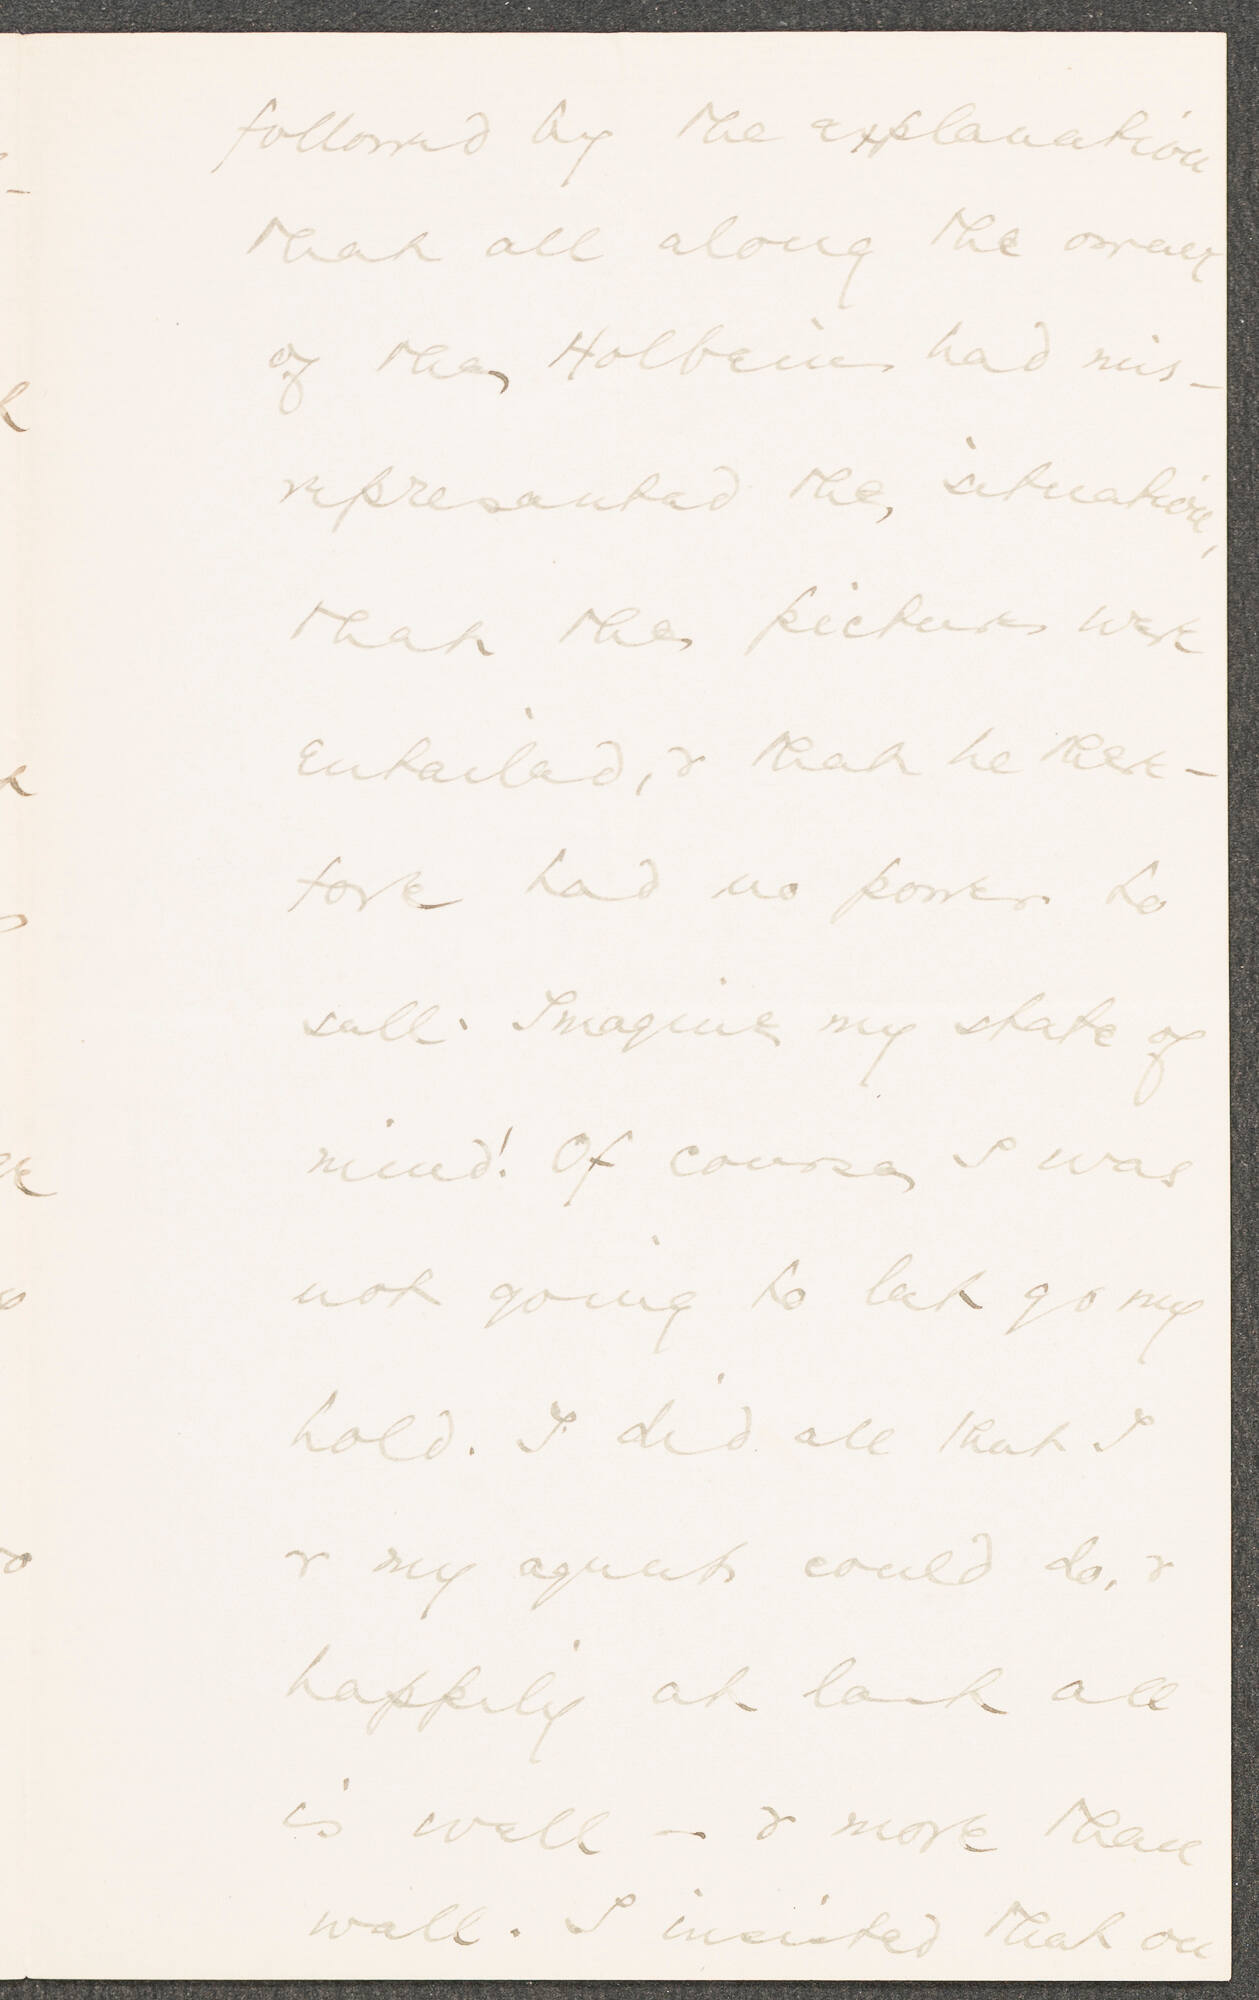 followed by the explanation
that all along the owner
of the Holbeins had mis-
represented the situation,
that the pictures were
entailed, & that he there-
fore had no power to
sell. Imagine my state of
mind! Of course I was
not going to let go my
hold. I did all that I
& my agents could do, &
happily at last all
is well – & more than
well. I insisted that on